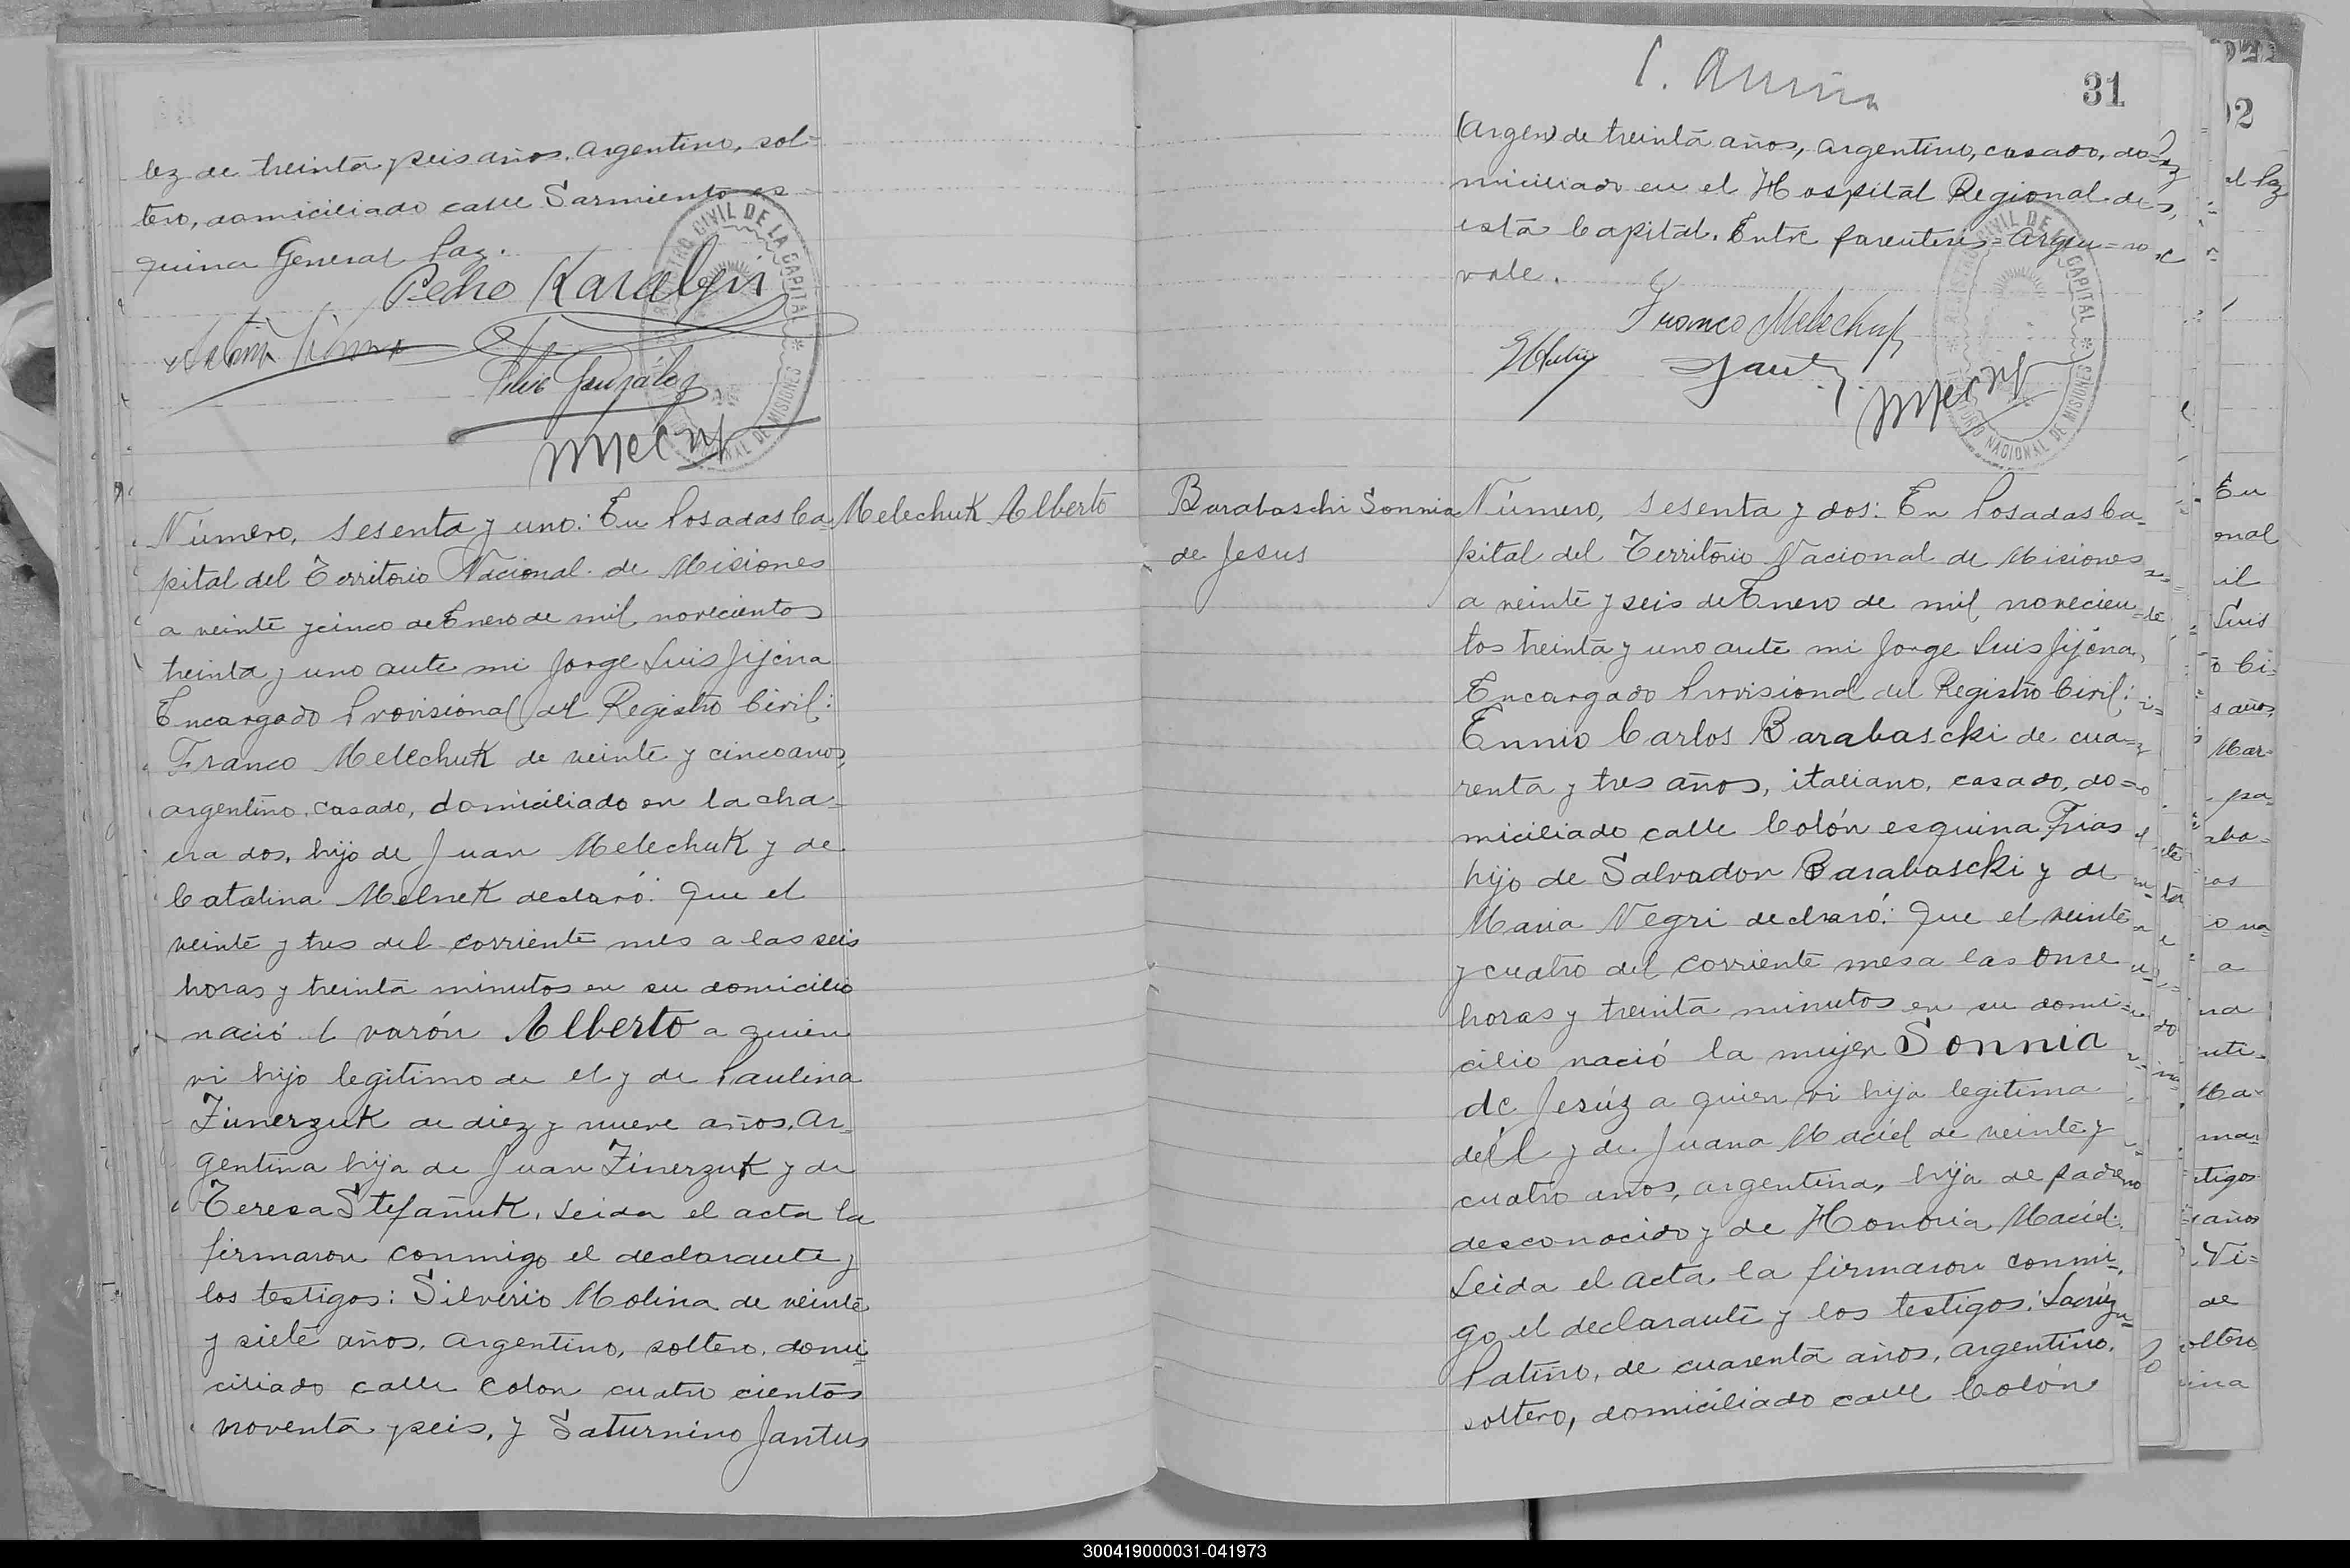 lez de treinta y seis años, argentino, sol=
tero, domiciliado calle Sarmiento es=
quina General Paz.
Pedro
Felix González
Número, sesenta y uno: En Posadas Ca
Melechuk Alberto
pital del Territorio Nacional de Misiones
a veinte y cinco de Enero de mil novecientos
treinta y uno ante mi Jorge Luis Jijena
Encargado Provisional del Registro Civil:
Franco Melechuk de veinte y cinco años,
argentino, casado, domiciliado en la cha=
cra dos, hijo de Juan Melechuk y de
Catalina Melnek declaró: Que el
veinte y tres del corriente mes a las seis
horas y treinta minutos en su domicilio
nació el varón Alberto a quien
vi hijo legitimo de el y de Paulina
Zinerzuk de diez y nueve años, ar=
gentina hija de Juan Zinerzuk y de
Teresa Stefañuk. Leida el acta la
firmaron conmigo el declarante y
los testigos: Silverio Molina de veinte
y siete años, argentino, soltero, domi=
ciliado calle Colon cuatro cientos
noventa y seis, y Saturnino Jantus
31
(argen) de treinta años, argentino, casado, do=
miciliado en el Hospital Regional de
esta Capital. Entre parentesis=argen=no
vale.
Franco Melechuk
REGISTRO CIVIL DE LA CAPITAL
TERRITORIO NACIONAL DE MISIONES
Barabaschi Sonnia
de Jesus
Número, sesenta y dos: En Posadas Ca=
pital del Territorio Nacional de Misiones
a veinte y seis de Enero de mil novecien=
tos treinta y uno ante mi Jorge Luis Jijena,
Encargado Provisional del Registro Civil:
Ennio Carlos Barabascki de cua=
renta y tres años, italiano, casado, do=
miciliado calle Colón esquina Frias
hijo de Salvador Barabascki y de
Maria Negri declaró: Que el veinte
y cuatro del corriente mes a las once
horas y treinta minutos en su domi=
cilio nació la mujer Sonnia
de Jesúz a quien vi hija legitima
de él y de Juana Maciel de veinte y
cuatro años, argentina, hija de padre
desconocido y de Honoria Maciel.
Leida el acta la firmaron conmi=
go el declarante y los testigos:
Patiño, de cuarenta años, argentino,
soltero, domiciliado calle Colón
300419000031-041973